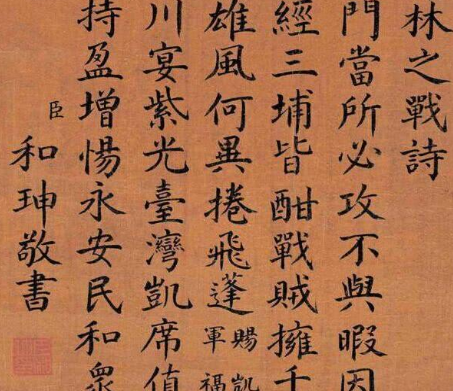 林之戰詩
門當所必攻不與暇因
經三埔皆酣戰賊擁千
雄風何異捲飛蓬賜凱
軍福
川宴紫光臺灣凱席值
持盈增惕永安民和衆
臣和珅敬書